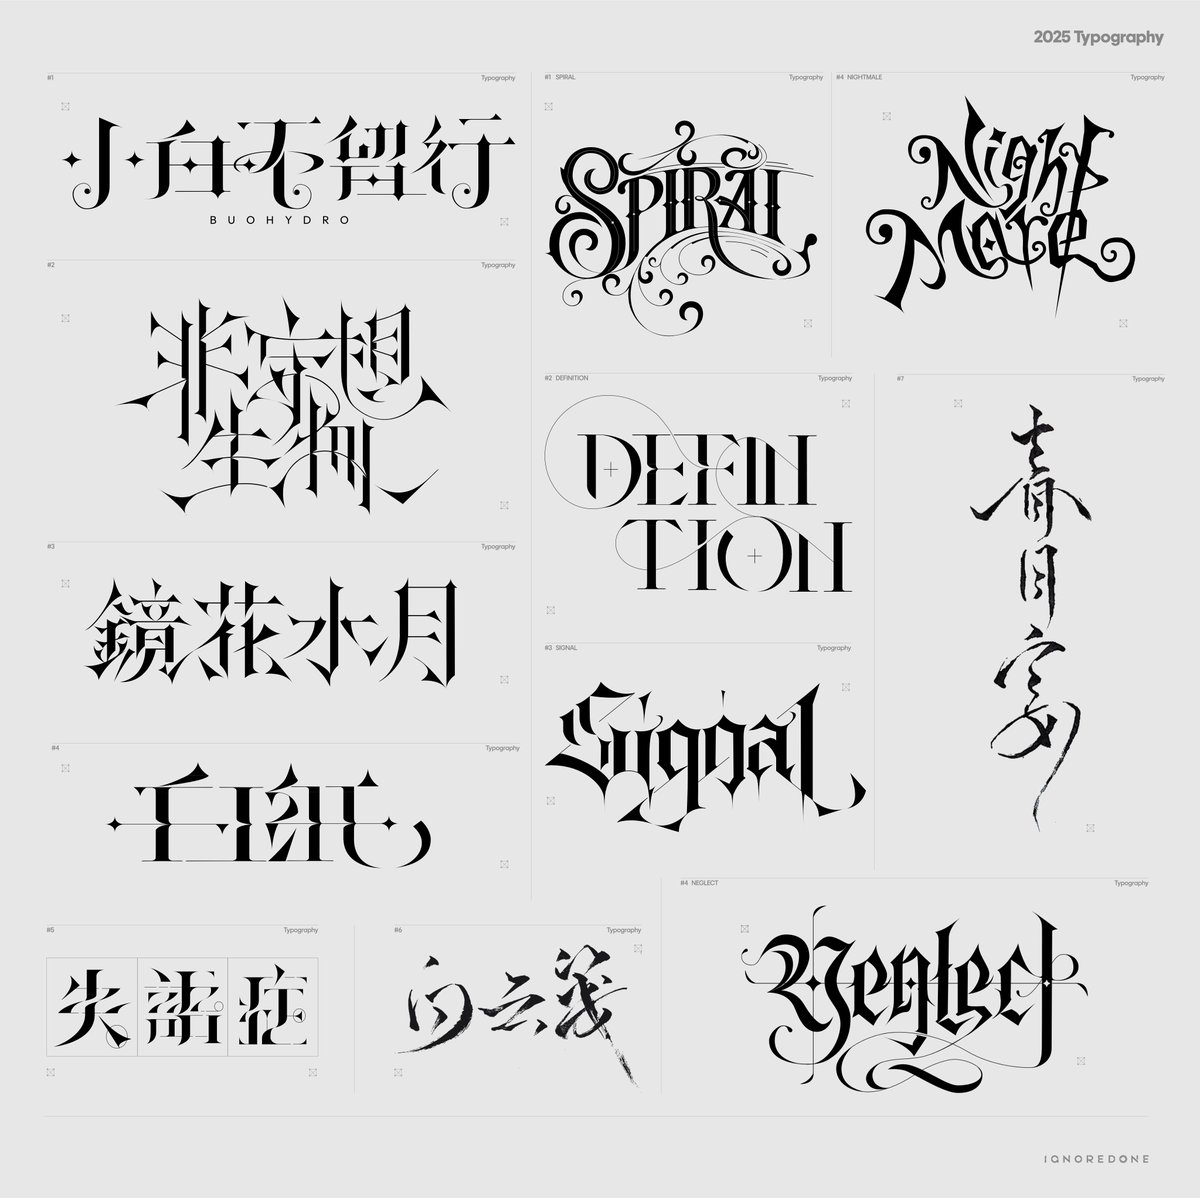 2025 Typography
#1 Typography
小白不留行
BUOHYDRO
#2 Typography
生物
#3 Typography
鏡花水月
#4 Typography
#5 Typography
失語症
#6 Typography
白云笺
#1 SPIRAL Typography
SPIRAL
#4 NIGHTMALE Typography
Night
Mare
#2 DEFINITION Typography
DEFINI
TION
#7 Typography
春日宴
#3 SIGNAL Typography
Signal
#4 NEGLECT Typography
Neglect
IGNOREDONE